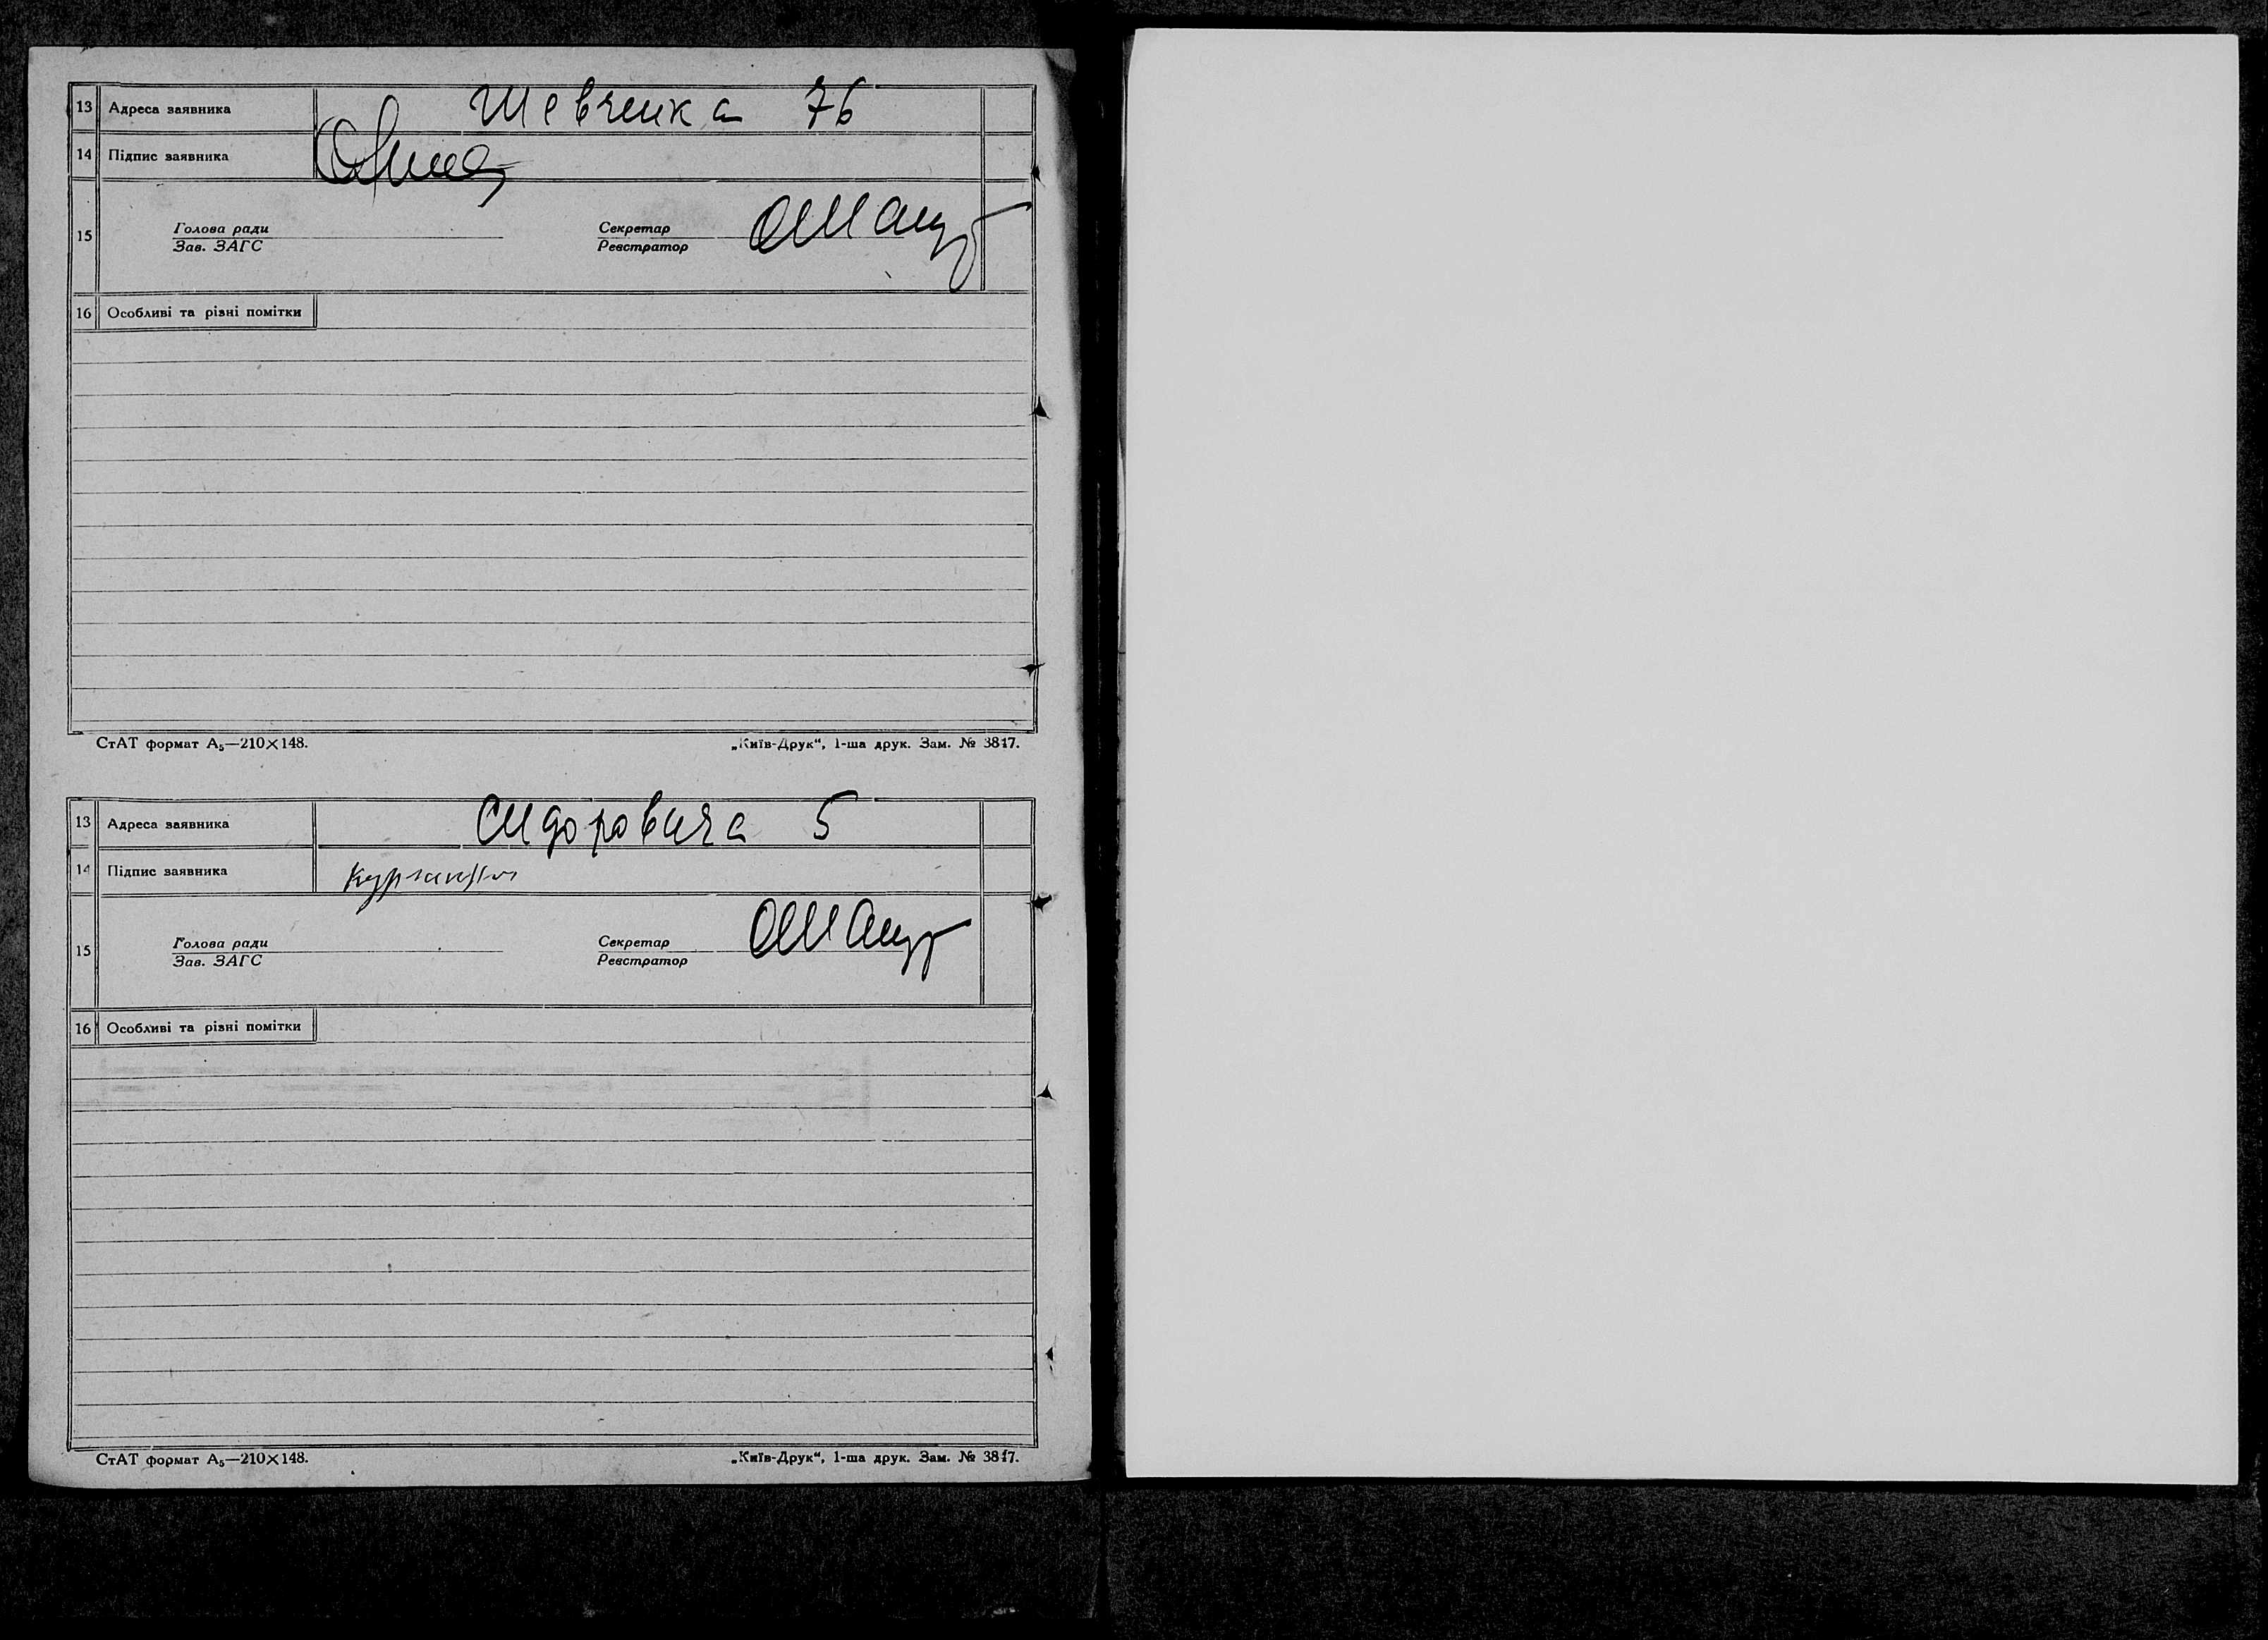 13 Адреса заявника Шевченка 76
14 Підпис заявника
15 Голова ради Секретар
Зав. ЗАГС Реєстратор
16 Особливі та різні помітки
СтАТ формат А₅—210×148. „Київ-Друк“, 1-ша друк. Зам. № 3847.
13 Адреса заявника Сидоровича 5
14 Підпис заявника
15 Голова ради Секретар
Зав. ЗАГС Реєстратор
16 Особливі та різні помітки
СтАТ формат А₅—210×148. „Київ-Друк“, 1-ша друк. Зам. № 3847.